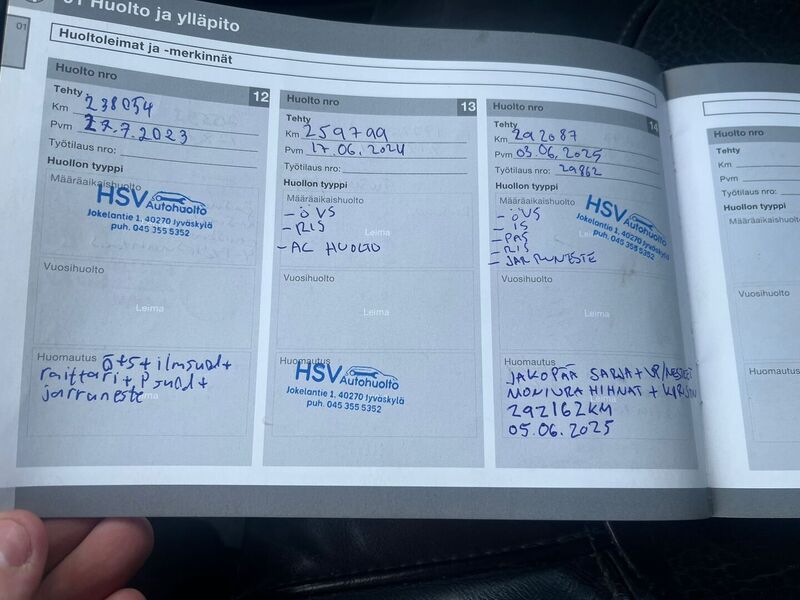 01 Huolto ja ylläpito
01
Huoltoleimat ja -merkinnät
Huolto nro
12
Tehty
Km 238054
Pvm 27.7.2023
Työtilaus nro:
Huollon tyyppi
Määräaikaishuolto
HSV Autohuolto
Jokelantie 1, 40270 Jyväskylä
puh. 045 355 5352
Vuosihuolto
Leima
Huomautus ö+s+ilmsuod+
raittari+p suod+
jarruneste
Huolto nro
13
Tehty
Km 259799
Pvm 17.06.2024
Työtilaus nro:
Huollon tyyppi
Määräaikaishuolto
Leima
- ÖVS
- RIS
- AC HUOLTO
Vuosihuolto
Leima
Huomautus
HSV Autohuolto
Jokelantie 1, 40270 Jyväskylä
puh. 045 355 5352
Huolto nro
14
Tehty
Km 292087
Pvm 03.06.2025
Työtilaus nro: 29862
Huollon tyyppi
Määräaikaishuolto
- ÖVS
- IS
- PAS
- RIS
- JARRUNESTE
HSV Autohuolto
Jokelantie 1, 40270 Jyväskylä
puh. 045 355 5352
Vuosihuolto
Leima
Huomautus
JAKOPÄÄ SARJA + VP/NESTEET
MONIURA HIHNAT +
292162KM
05.06.2025
Huolto nro
Tehty
Km
Pvm
Työtilaus nro:
Huollon tyyppi
Määräaikaishuolto
Vuosihuolto
Huomautus